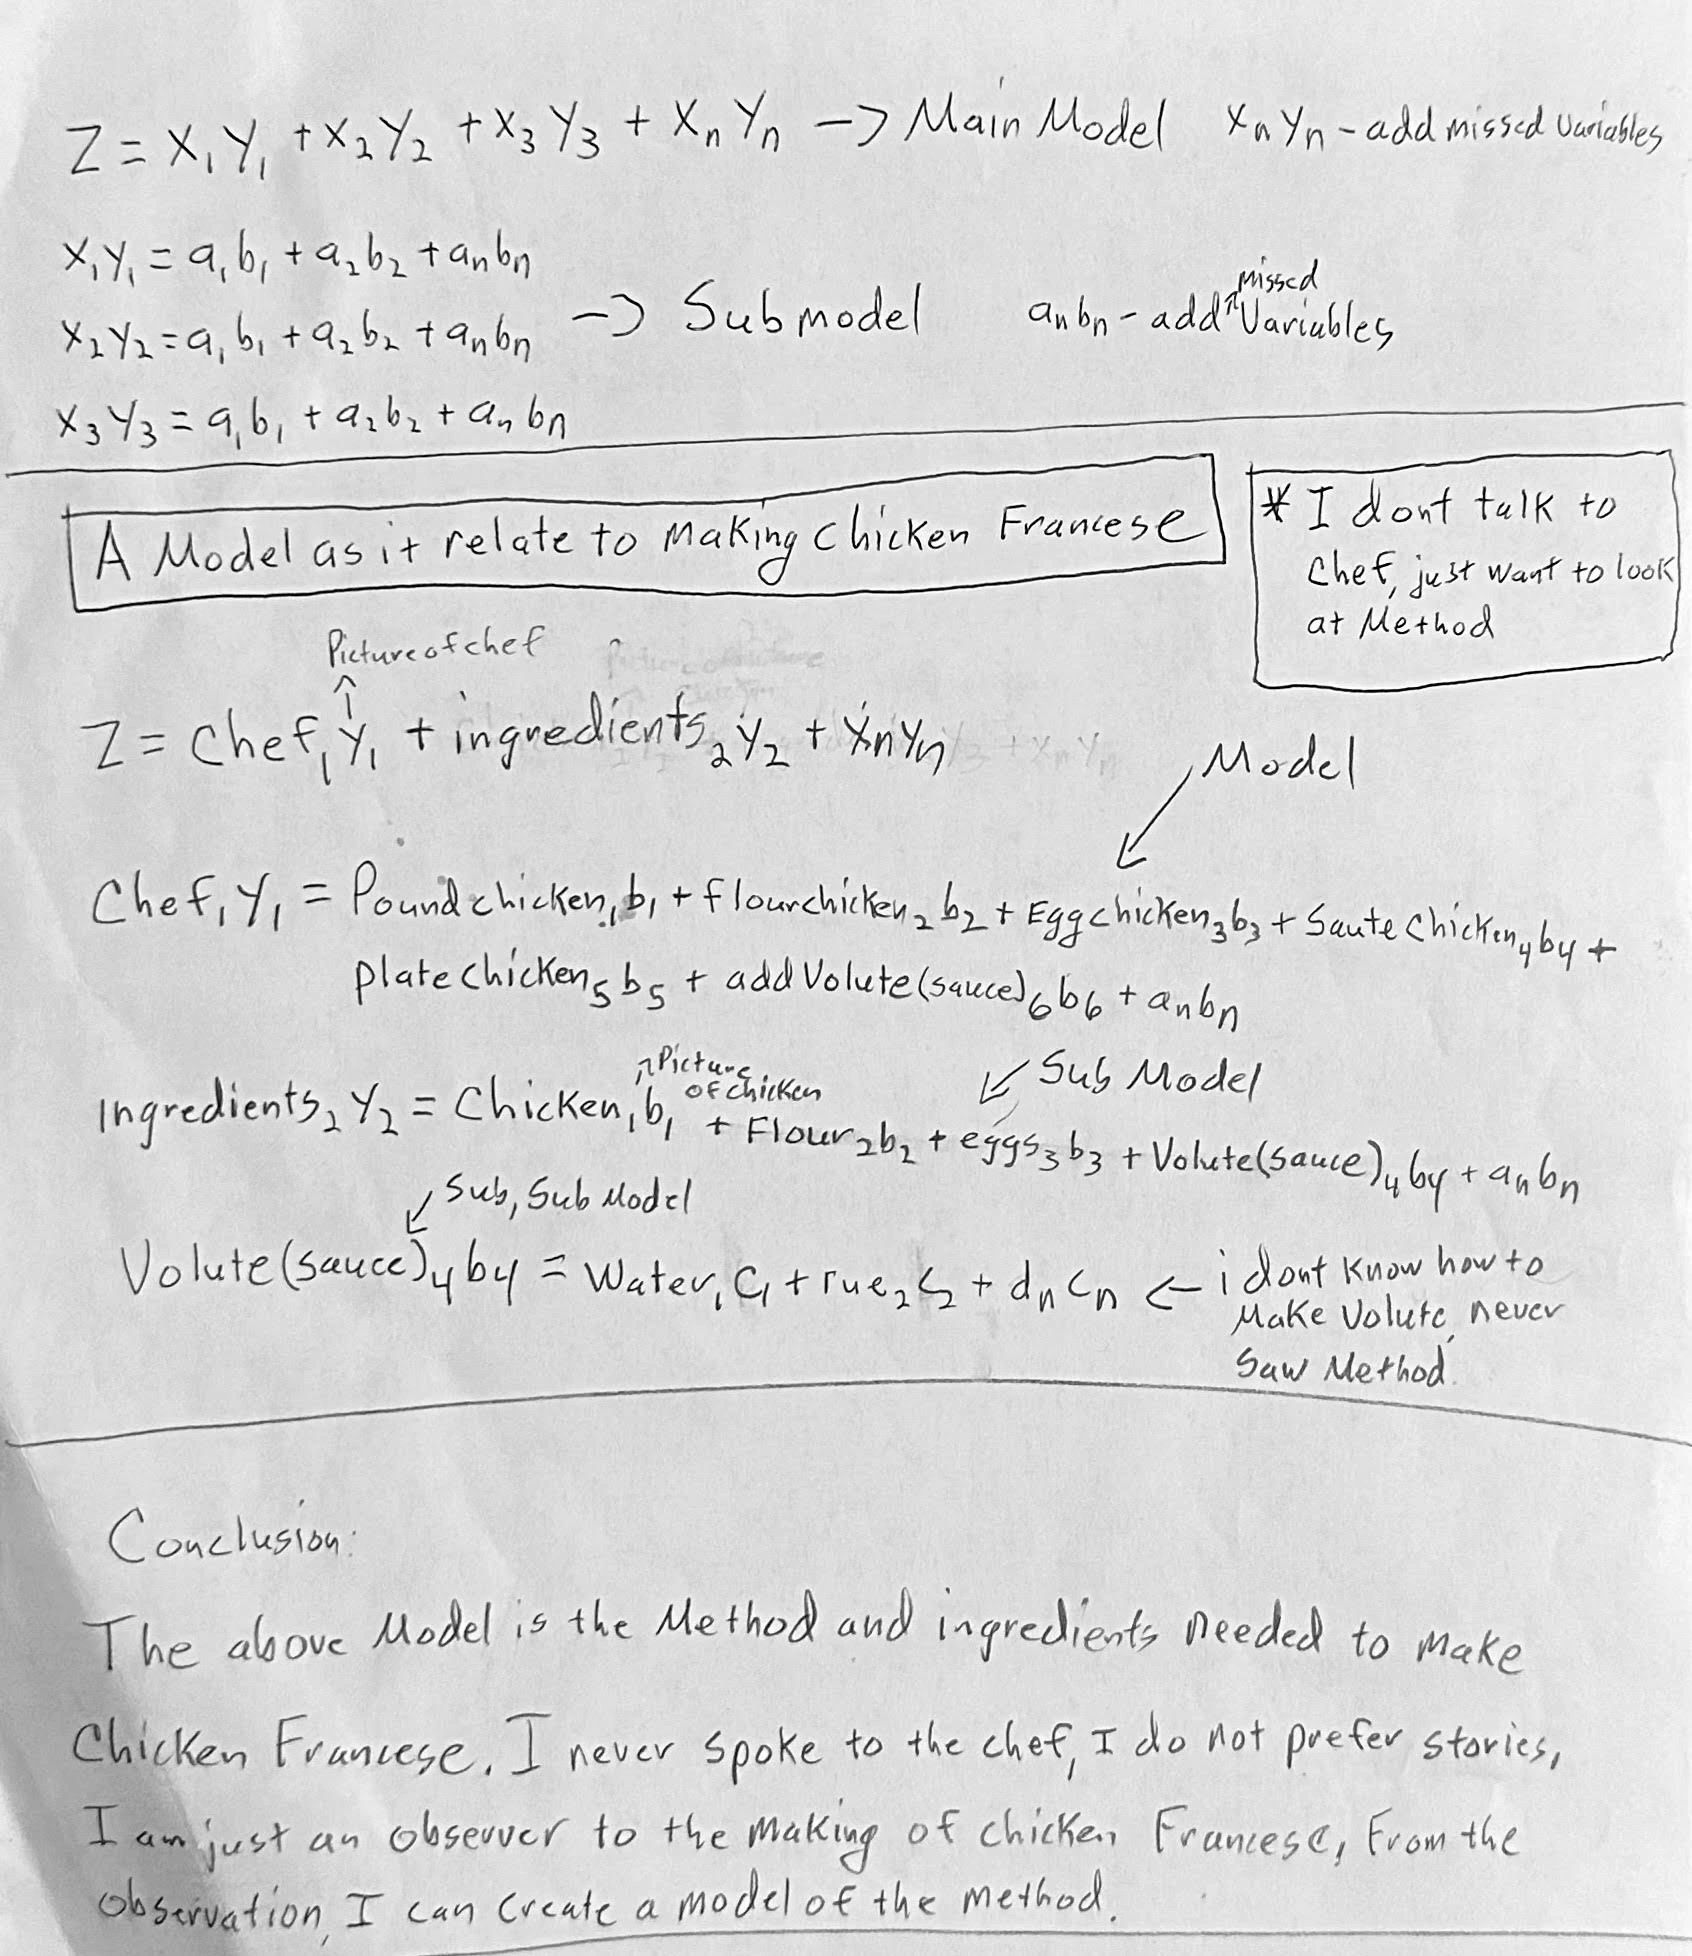 Z = X₁Y₁ + X₂Y₂ + X₃Y₃ + XₙYₙ -> Main Model XₙYₙ - add missed variables
X₁Y₁ = a₁b₁ + a₂b₂ + aₙbₙ
X₂Y₂ = a₁b₁ + a₂b₂ + aₙbₙ -> Submodel aₙbₙ - add missed Variables
X₃Y₃ = a₁b₁ + a₂b₂ + aₙbₙ
A Model as it relate to Making Chicken Francese
* I dont talk to
Chef, just want to look
at Method
Picture of chef
Z = Chef₁Y₁ + ingredients₂Y₂ + XₙYₙ
Model
Chef₁Y₁ = Pound chicken₁b₁ + flour chicken₂b₂ + Egg chicken₃b₃ + Saute Chicken₄b₄ +
Plate chicken₅b₅ + add Volute(sauce)₆b₆ + aₙbₙ
Picture
of chicken
Sub Model
Ingredients₂Y₂ = Chicken₁b₁ + Flour₂b₂ + eggs₃b₃ + Volute(sauce)₄b₄ + aₙbₙ
Sub, Sub Model
Volute(sauce)₄b₄ = Water₁C₁ + rue₂C₂ + dₙCₙ <- i dont know how to
Make Volute, never
Saw Method.
Conclusion:
The above Model is the Method and ingredients needed to make
Chicken Francese. I never spoke to the chef, I do not prefer stories,
I am just an observer to the making of chicken Francese, From the
observation, I can create a model of the method.